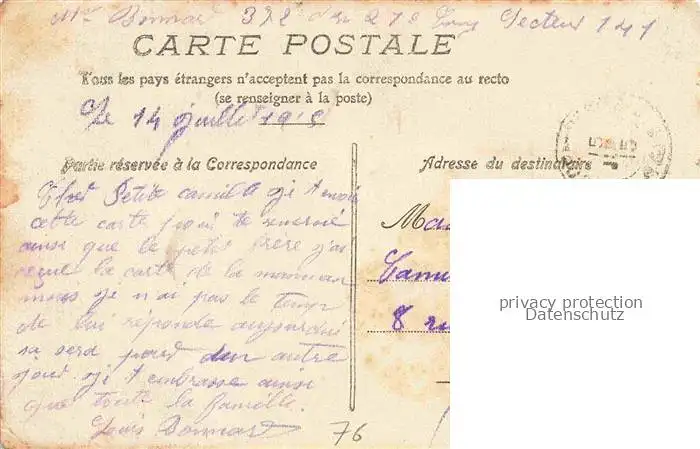 Bonnard 322 27e Secteur 141
CARTE POSTALE
Tous les pays étrangers n'acceptent pas la correspondance au recto
(se renseigner à la poste)
Le 14 juillet 191
Partie réservée à la Correspondance
Adresse du destinataire
Petite camille je t envoi
cette carte pour te
ainsi que le petit frère j'ai
reçue la carte de la maman
mais je n ai pas le temp
de lui réponde aujourdui
sa sera pour dun autre
jour je t embrasse ainsi
que toute la famille.
Louis Bonnard
76
Ma
8 ru
privacy protection
Datenschutz